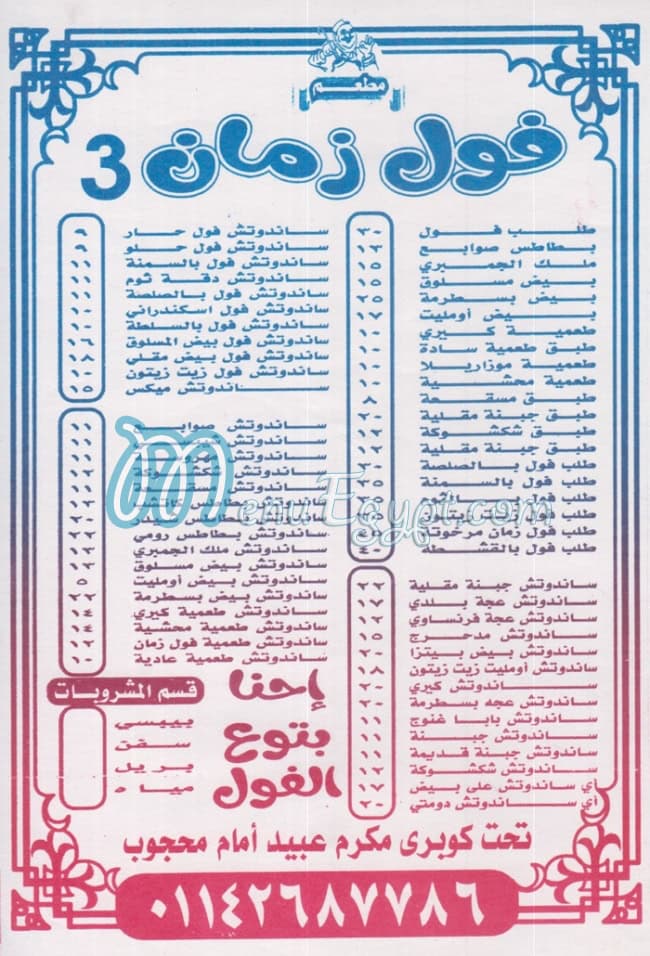 مطعم
فول زمان 3
طلب فول ٣٠
بطاطس صوابع ١٣
ملك الجمبري ١٥
بيض مسلوق ١٥
بيض بسطرمة ٢٥
بيض أومليت ١٧
طعمية كيري ١٠
طبق طعمية سادة ١٠
طعمية موزاريلا ١٠
طعمية محشية ١٠
طبق مسقعة ٨
طبق جبنة مقلية ٢٠
طبق شكشوكة ١٢
طبق جبنة مقلية ١٢
طلب فول بالصلصة ٢٠
طلب فول بالسمنة ٢٥
طلب فول
طلب
طلب فول زمان مرخوت
طلب فول بالقشطة ٤٠
ساندوتش جبنة مقلية ٢٢
ساندوتش عجة بلدي ١٧
ساندوتش عجة فرنساوي ١٢
ساندوتش مدحرج ١٥
ساندوتش بيض بيتزا ٢٠
ساندوتش أومليت زيت زيتون ١٨
ساندوتش كيري ٢٠
ساندوتش عجه بسطرمة ٢٠
ساندوتش بابا غنوج ١١
ساندوتش جبنة ١١
ساندوتش جبنة قديمة ١١
ساندوتش شكشوكة ١٢
أي ساندوتش على بيض ١٧
أي ساندوتش دومتي ٢٠
ساندوتش فول حار ٩
ساندوتش فول حلو ٩
ساندوتش فول بالسمنة ١١
ساندوتش دقة ثوم ١١
ساندوتش فول بالصلصة ١١
ساندوتش فول اسكندراني ١٠
ساندوتش فول بالسلطة ١٠
ساندوتش فول بيض المسلوق ١٦
ساندوتش فول بيض مقلي ١٨
ساندوتش فول زيت زيتون ١٠
ساندوتش ميكس ١٥
ساندوتش صوابع ١١
ساندوتش ١١
ساندوتش ١١
ساندوتش شكشوكة ١٢
ساندوتش مسقعة
ساندوتش بطاطس كاتشب
ساندوتش بطاطس ٢٠
ساندوتش بطاطس رومي ٢٢
ساندوتش ملك الجمبري ١٢
ساندوتش بيض مسلوق ١٢
ساندوتش بيض أومليت ٥
ساندوتش بيض بسطرمة ٢٢
ساندوتش طعمية كيري ١٤
ساندوتش طعمية محشية ١٤
ساندوتش طعمية فول زمان ١٢
ساندوتش طعمية عادية ١٠
قسم المشروبات
بيبسى
سفن
بريل
مياه
إحنا
بتوع
الفول
تحت كوبرى مكرم عبيد أمام محجوب
٠١١٤٢٦٨٧٧٨٦
MenuEgypt.com